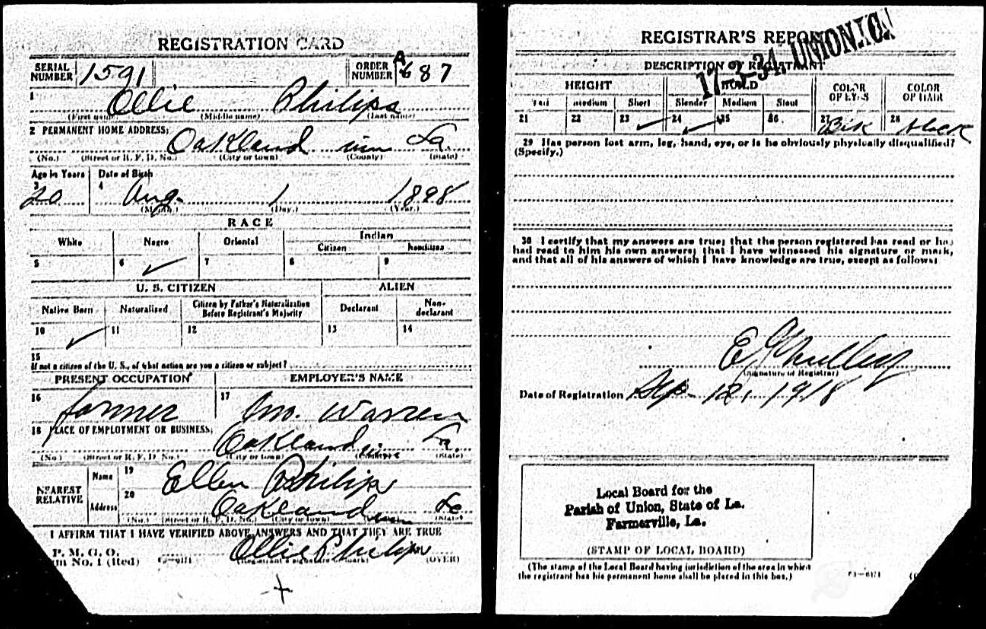 REGISTRATION CARD
SERIAL NUMBER 1591 ORDER NUMBER A 687
1 Ollie Philips
(First name) (Middle name) (Last name)
2 PERMANENT HOME ADDRESS:
Oakland La
(No.) (Street or R. F. D. No.) (City or town) (County) (State)
Age in Years Date of Birth
3 20 4 Aug. 1 1898
(Month.) (Day.) (Year.)
RACE
White Negro Oriental Indian
Citizen Noncitizen
5 6 ✓ 7 8 9
U. S. CITIZEN ALIEN
Native Born Naturalized Citizen by Father's Naturalization Before Registrant's Majority Declarant Non-declarant
10 ✓ 11 12 13 14
15
If not a citizen of the U. S., of what nation are you a citizen or subject?
PRESENT OCCUPATION EMPLOYER'S NAME
16 farmer 17 Jno. Warren
18 PLACE OF EMPLOYMENT OR BUSINESS:
Oakland La.
(No.) (Street or R. F. D. No.) (City or town) (County) (State)
NEAREST RELATIVE Name 19 Ellen Philips
Address 20 Oakland La
(No.) (Street or R. F. D. No.) (City or town) (State)
I AFFIRM THAT I HAVE VERIFIED ABOVE ANSWERS AND THAT THEY ARE TRUE
P. M. G. O.
m No. 1 (Red) Ollie Philips
(Registrant's signature or mark) (OVER)
REGISTRAR'S REPORT
17-3-34. UNION.
DESCRIPTION OF REGISTRANT
HEIGHT BUILD COLOR OF EYES COLOR OF HAIR
Tall Medium Short Slender Medium Stout
21 22 23 ✓ 24 ✓ 25 26 27 Blk 28 black
29 Has person lost arm, leg, hand, eye, or is he obviously physically disqualified?
(Specify.)
30 I certify that my answers are true; that the person registered has read or has
had read to him his own answers; that I have witnessed his signature or mark,
and that all of his answers of which I have knowledge are true, except as follows:
(Signature of Registrar)
Date of Registration Sep. 12, 1918
Local Board for the
Parish of Union, State of La.
Farmerville, La.
(STAMP OF LOCAL BOARD)
(The stamp of the Local Board having jurisdiction of the area in which
the registrant has his permanent home shall be placed in this box.)